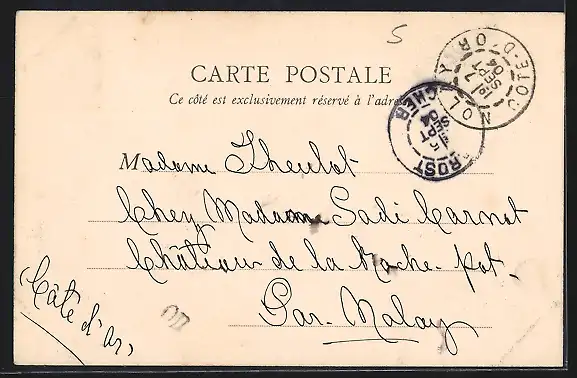 5
CARTE POSTALE
Ce côté est exclusivement réservé à l'adresse
Madame Theulot
Chez Madame Sadi Carnot
Château de la Roche-pot-
Par-Nolay
Côte d'Or,
NOLAY
COTE-D'OR
7
04
ROST
CHER
5
SEPT
04